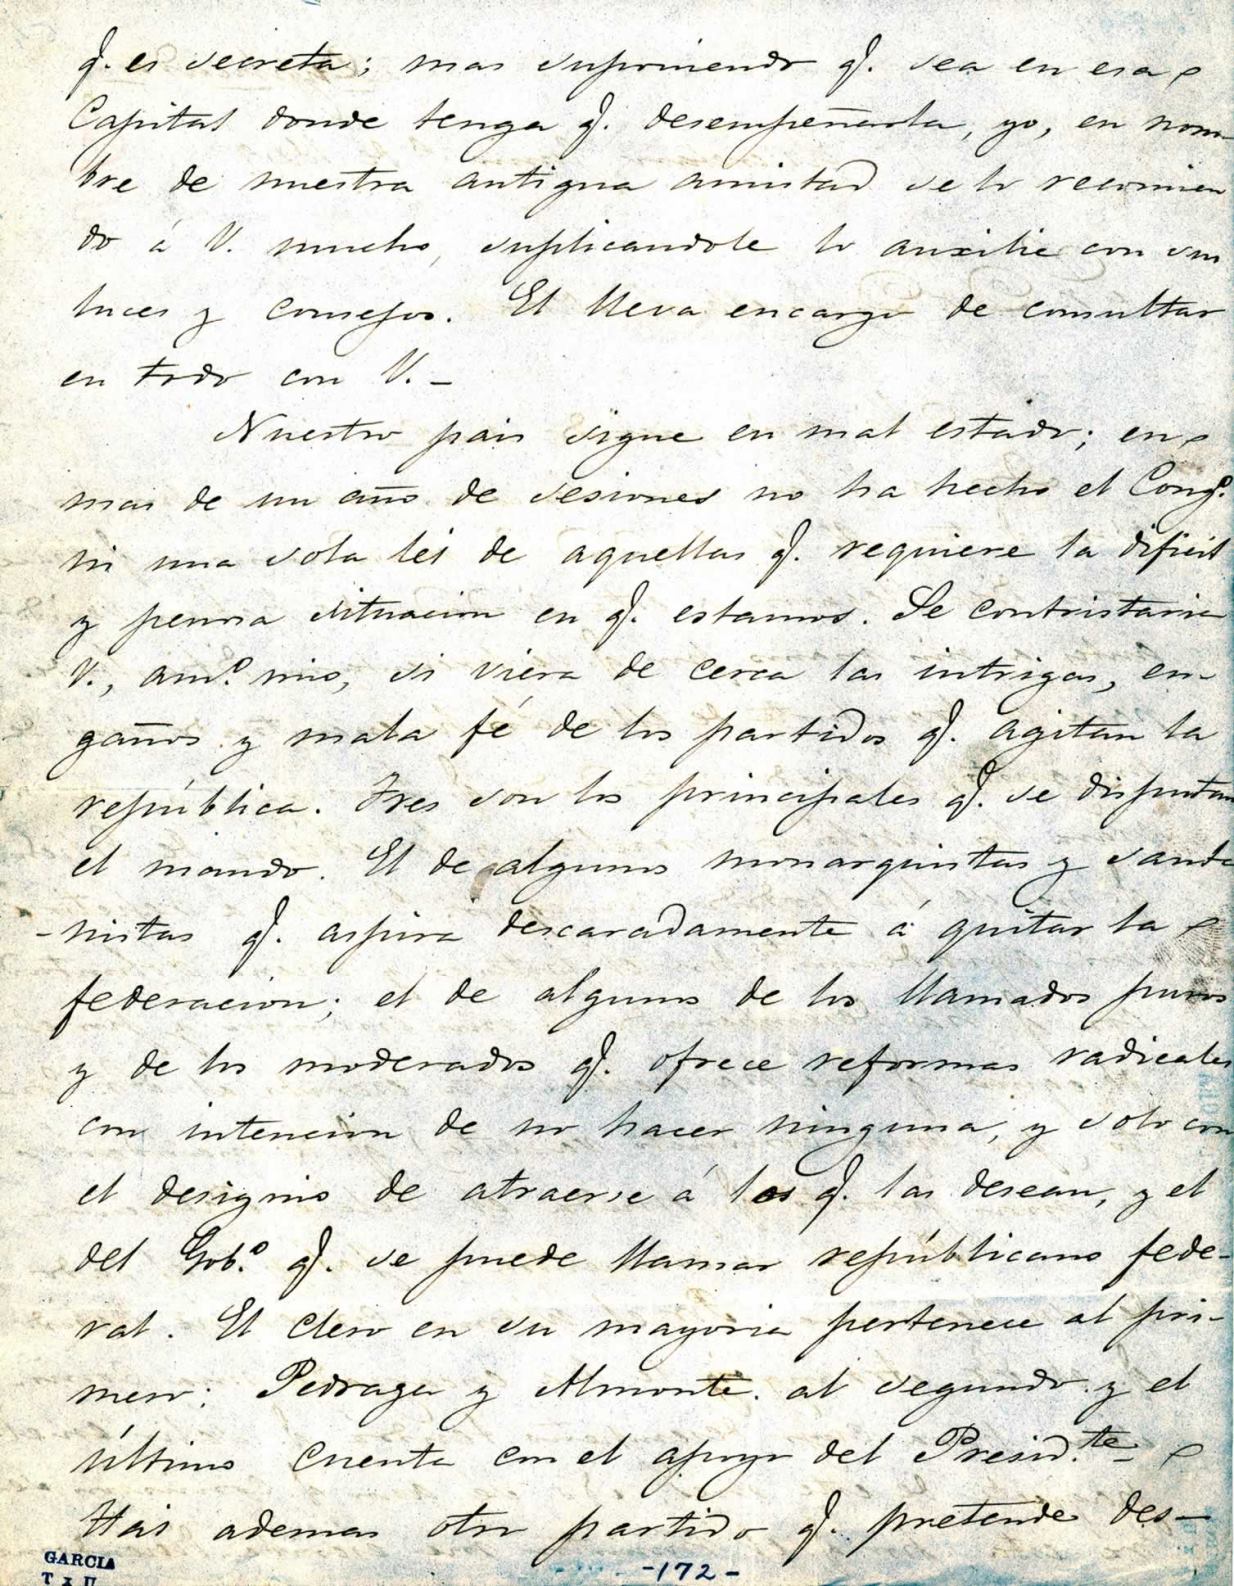 q.e es secreta; mas suponiendo q.e sea en esa
Capital donde tenga q.e desempeñarla, yo, en nom
bre de nuestra antigua amistad se lo recomien
do á V. mucho, suplicandole lo auxilie con sus
luces y consejos. El lleva encargo de consultar
en todo con V. –
Nuestro pais sigue en mal estado; en
mas de un año de sesiones no ha hecho el Cong.o
ni una sola lei de aquellas q.e requiere la dificil
y penosa situacion en q.e estamos. Se contristaria
V., am.o mio, si viera de cerca las intrigas, en-
gaños y mala fé de los partidos q.e agitan la
república. Tres son los principales q.e se disputan
el mando. El de algunos monarquistas y santa
-nistas q.e aspira descaradamente á quitar la
federacion; el de algunos de los llamados puros
y de los moderados q.e ofrece reformas radicales
con intencion de no hacer ninguna, y solo con
el designio de atraerse á los q.e las desean, y el
del Gob.o q.e se puede llamar républicano fede-
ral. El clero en su mayoria pertenece al pri-
mero; Pedraza y Almonte al segundo y el
último cuenta con el apoyo del Presid.te
Hai ademas otro partido q.e pretende des-
GARCIA
-172-